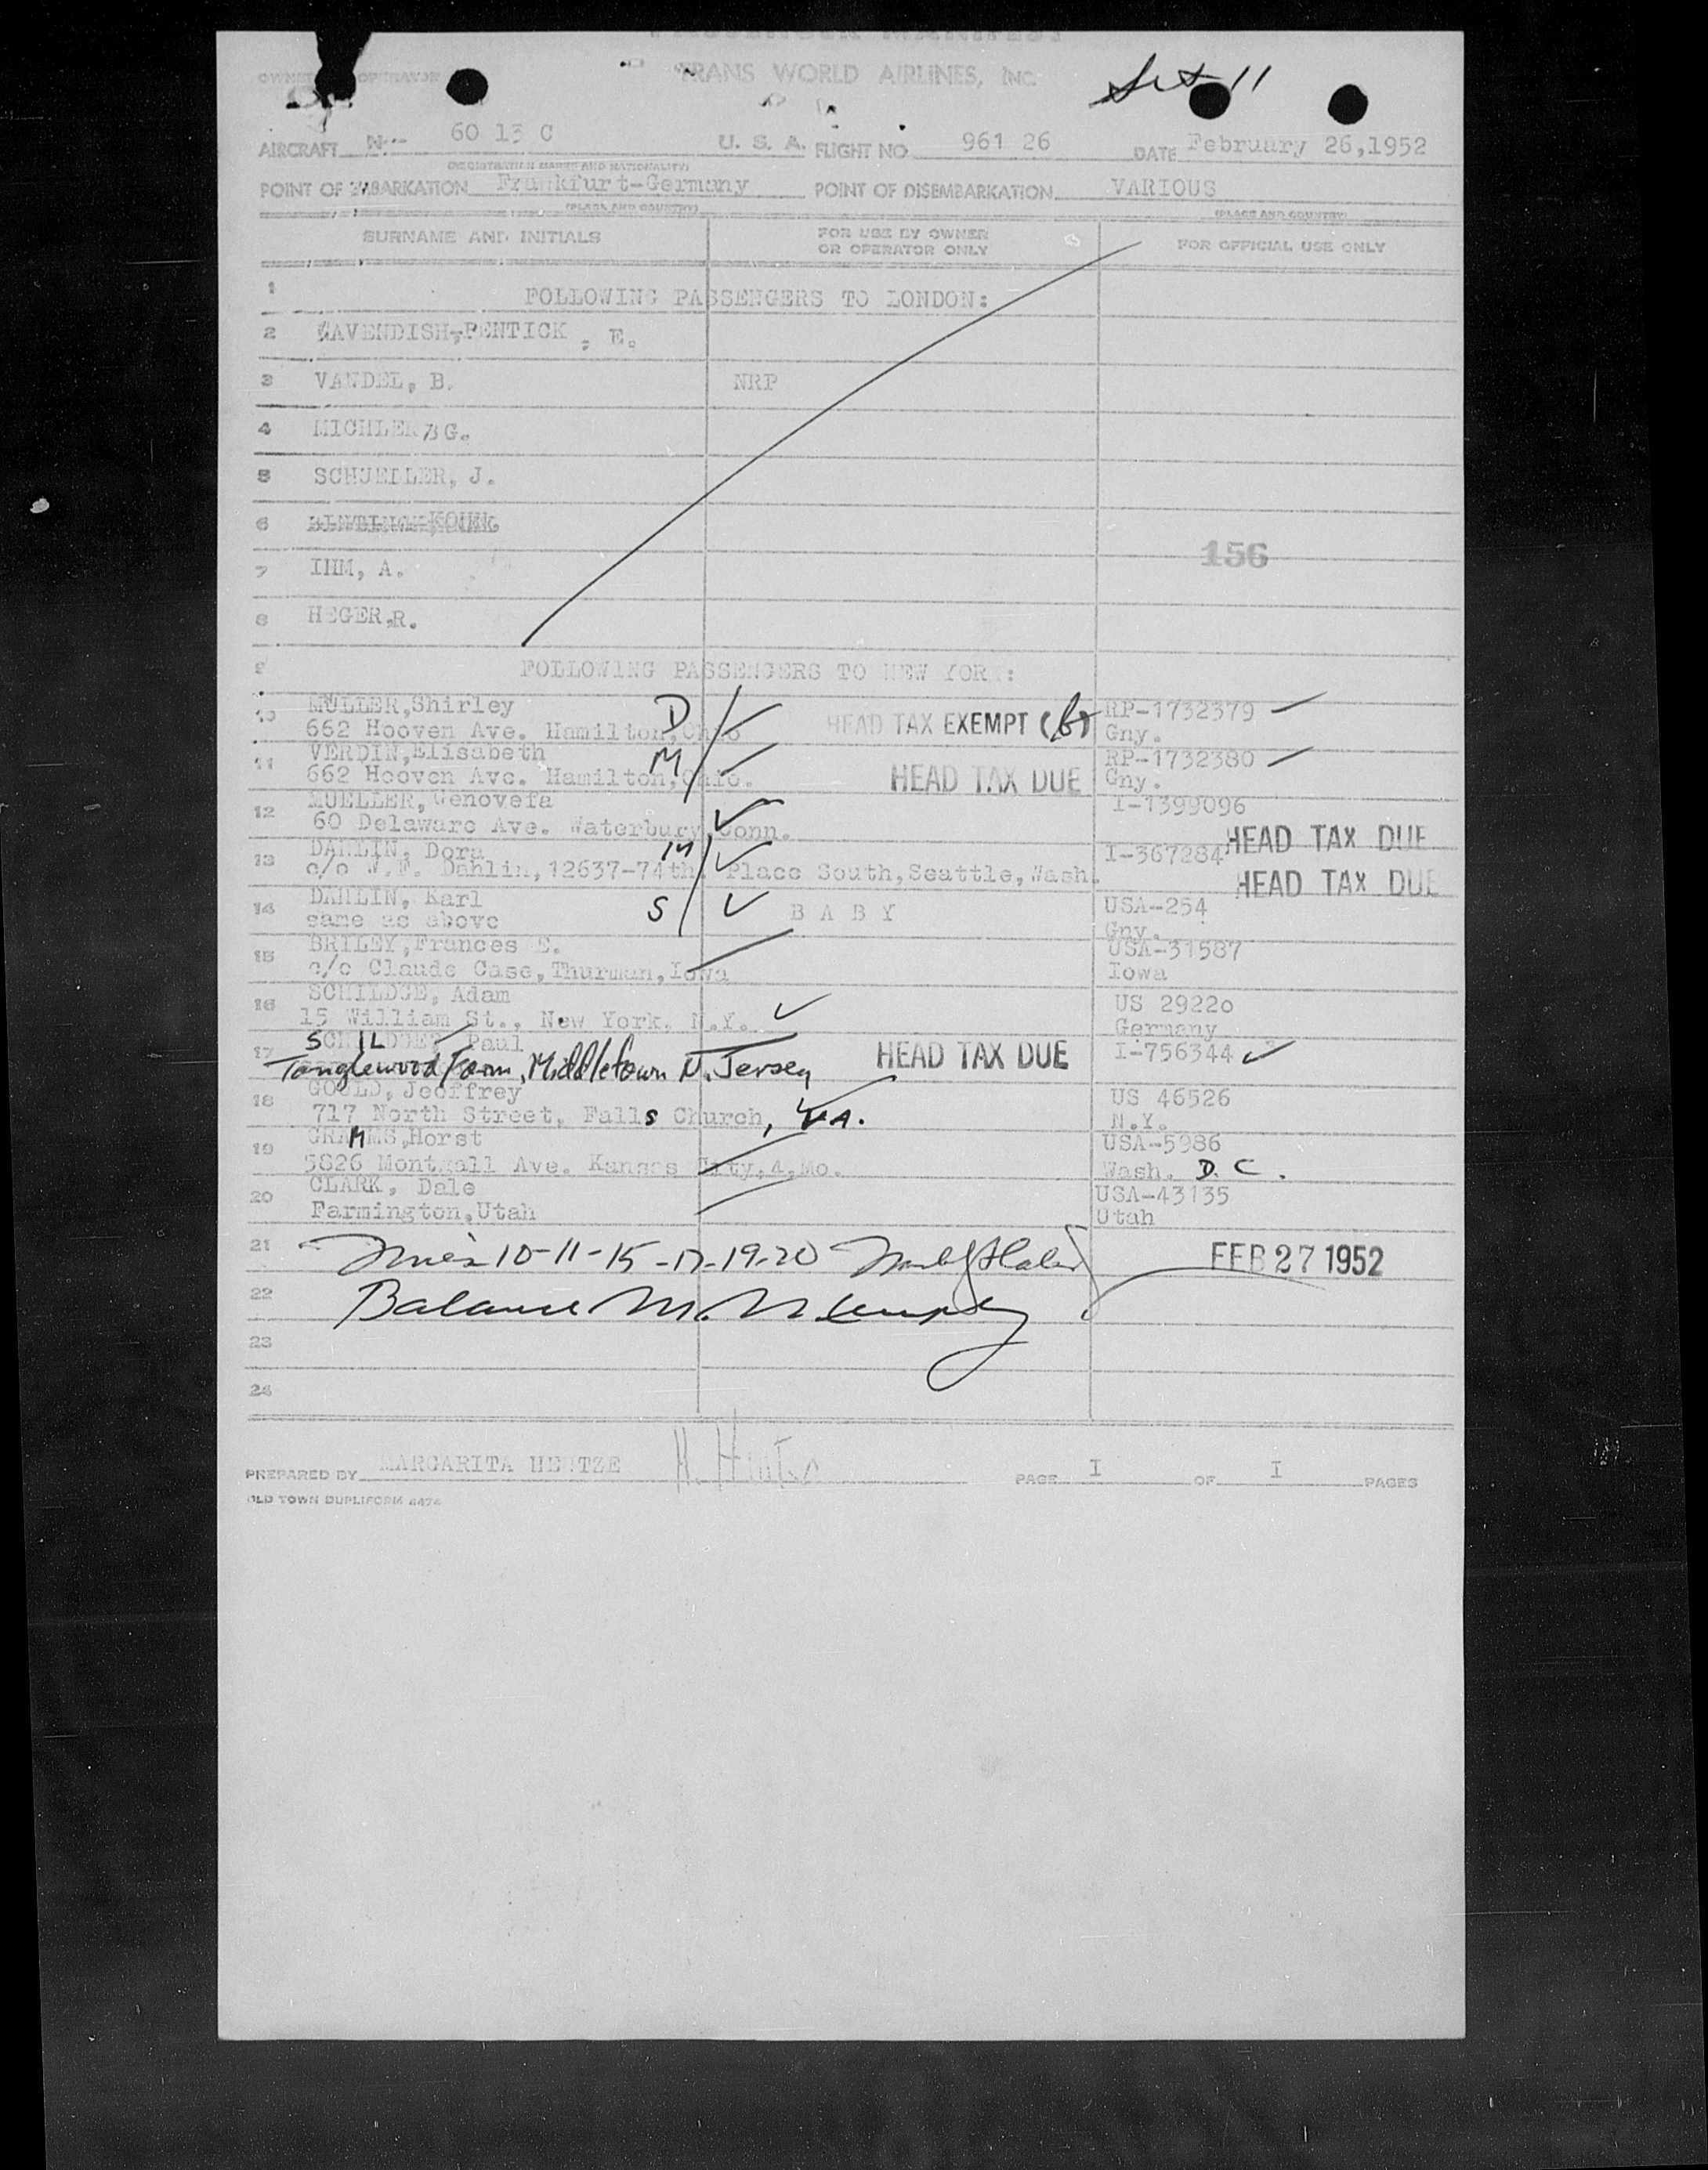 PASSENGER MANIFEST
OWNER OPERATOR TRANS WORLD AIRLINES, INC. Set 11
AIRCRAFT N-- 60 13 C U. S. A. FLIGHT NO 961 26 DATE February 26,1952
(REGISTRATION MARKS AND NATIONALITY)
POINT OF EMBARKATION Frankfurt-Germany POINT OF DISEMBARKATION VARIOUS
(PLACE AND COUNTRY) (PLACE AND COUNTRY)
SURNAME AND INITIALS FOR USE BY OWNER OR OPERATOR ONLY FOR OFFICIAL USE ONLY
1 FOLLOWING PASSENGERS TO LONDON:
2 CAVENDISH-PENTICK , E.
3 VANDEL, B. NRP
4 MICHLER, G.
5 SCHUELLER, J.
6
156
7 IHM, A.
8 HEGER,R.
9 FOLLOWING PASSENGERS TO NEW YORK:
10 MULLER,Shirley D HEAD TAX EXEMPT (b) RP-1732379
662 Hooven Ave. Hamilton,Ohio Gny.
11 VERDIN,Elisabeth M HEAD TAX DUE RP-1732380
662 Hooven Ave. Hamilton,Ohio. Gny.
12 MUELLER, Genovefa I-1399096
60 Delaware Ave. Waterbury,Conn. HEAD TAX DUE
13 DAHLIN, Dora M I-367284
c/o W.F. Dahlin,12637-74th. Place South,Seattle,Wash. HEAD TAX DUE
14 DAHLIN, Karl S B A B Y USA-254
same as above Gny.
15 BRILEY,Frances E. USA-31587
c/o Claude Case,Thurman,Iowa Iowa
16 SCHILDGE, Adam US 29220
15 William St., New York, N.Y. Germany
17 Paul HEAD TAX DUE I-756344
Tanglewood Farm, Middletown N. Jersey
18 GOULD, Jeoffrey US 46526
717 North Street, Falls Church, VA. N.Y.
19 GRAMMS,Horst USA-5986
5826 Montgall Ave. Kansas City,4,Mo. Wash. D.C.
20 CLARK, Dale USA-43135
Farmington,Utah Utah
21 10-11-15-17-19-20 FEB 27 1952
22 Balance
23
24
PREPARED BY MARGARITA HENTZE PAGE I OF I PAGES
OLD TOWN DUPLIFORM 4474